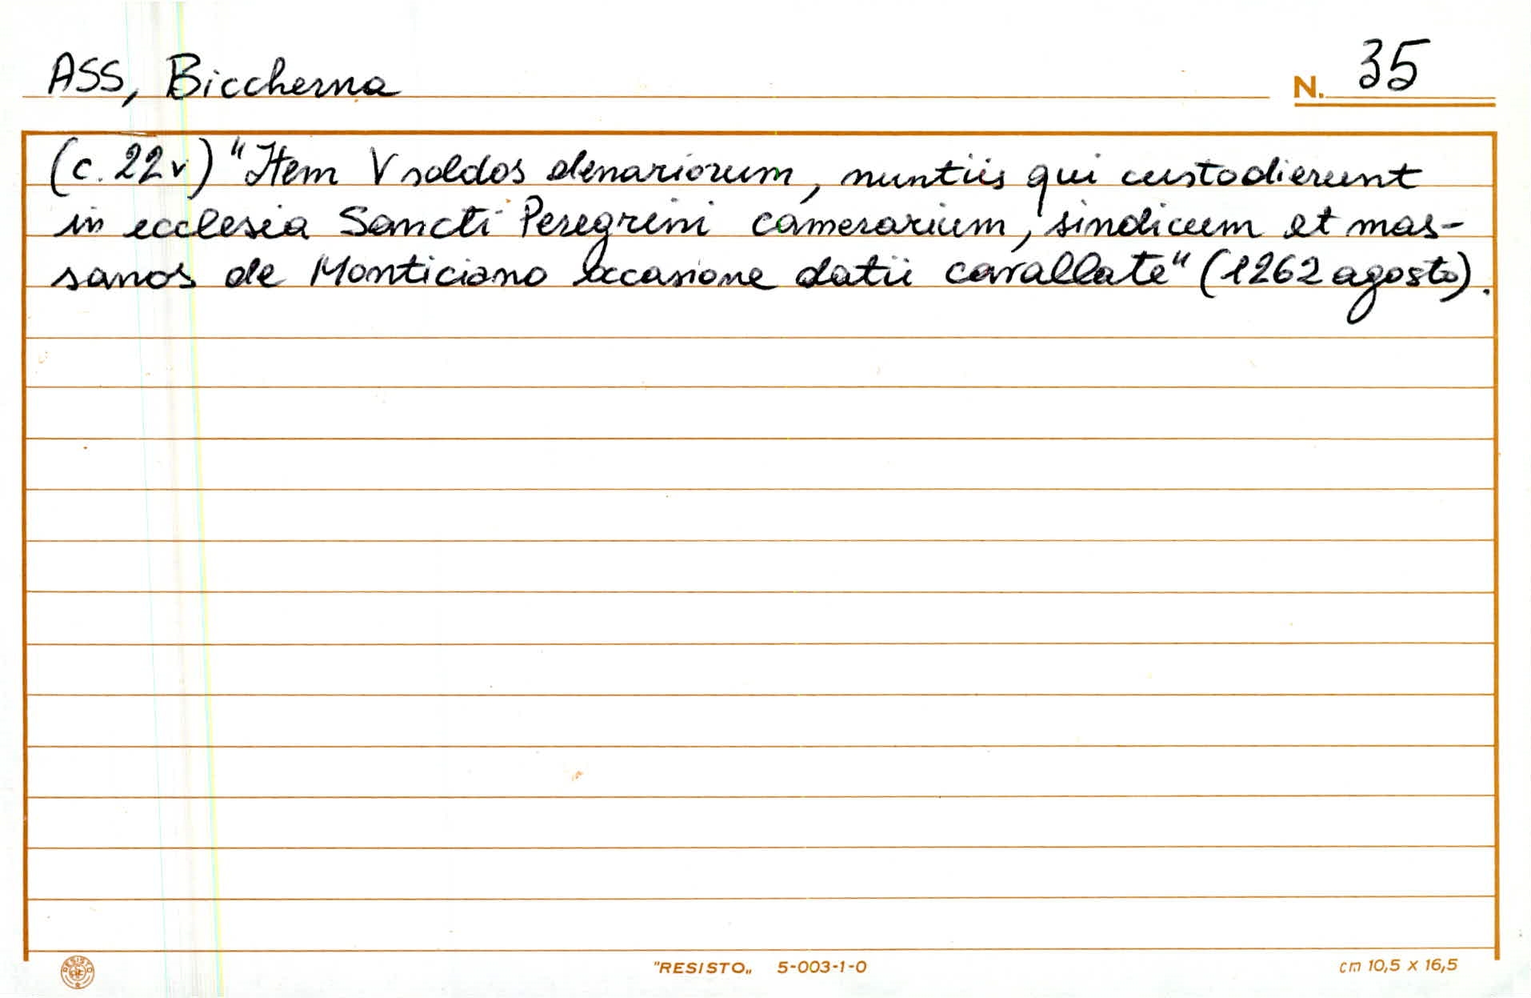 ASS, Biccherna N. 35
(c. 22v) "Item V soldos denariorum, nuntiis qui custodierunt
in ecclesia Sancti Peregrini camerarium, sindicum et mas-
sarios de Monticiano occasione datii cavallate" (1262 agosto).
RESISTO
"RESISTO„ 5-003-1-0 cm 10,5 x 16,5